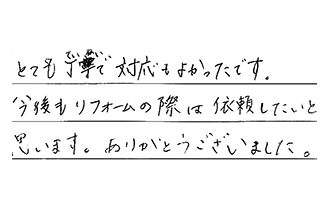 とても丁寧で対応もよかったです。
今後もリフォームの際は依頼したいと
思います。ありがとうございました。